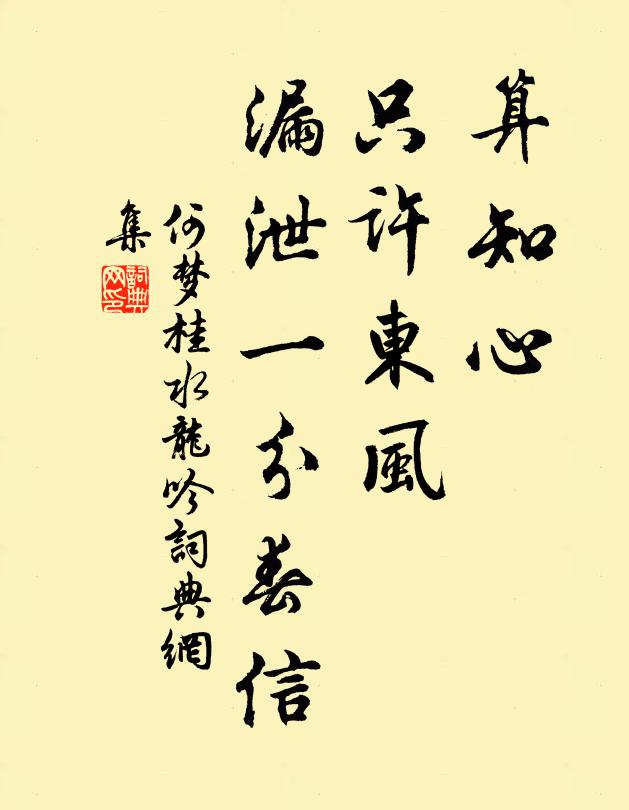 算知心
只許東風
漏泄一分春信
何梦桂水龍吟詞典網
集
詞典
网印